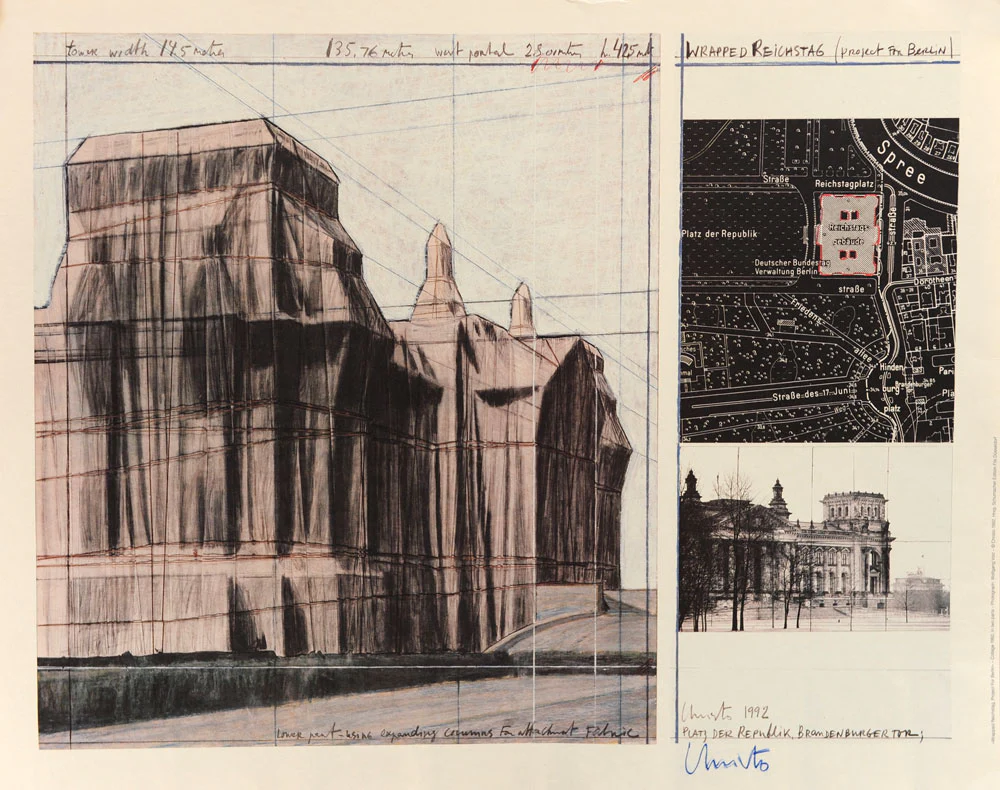 tower width 14,5 meter 135,76 meter west portal
WRAPPED REICHSTAG (PROJECT FOR BERLIN)
Spree
Straße
Reichstagplatz
straße
Platz der Republik
Reichstags-
gebäude
Deutscher Bundestag
Verwaltung Berlin
straße
Dorotheen
Friedens
allee
Hinden
burg-
Brandenburger
platz
Straße des 17. Juni
Pari
Pla
Christo 1992
PLATZ DER REPUBLIK, BRANDENBURGER TOR;
lower part-using expanding columns for attachment Fabric
Christo